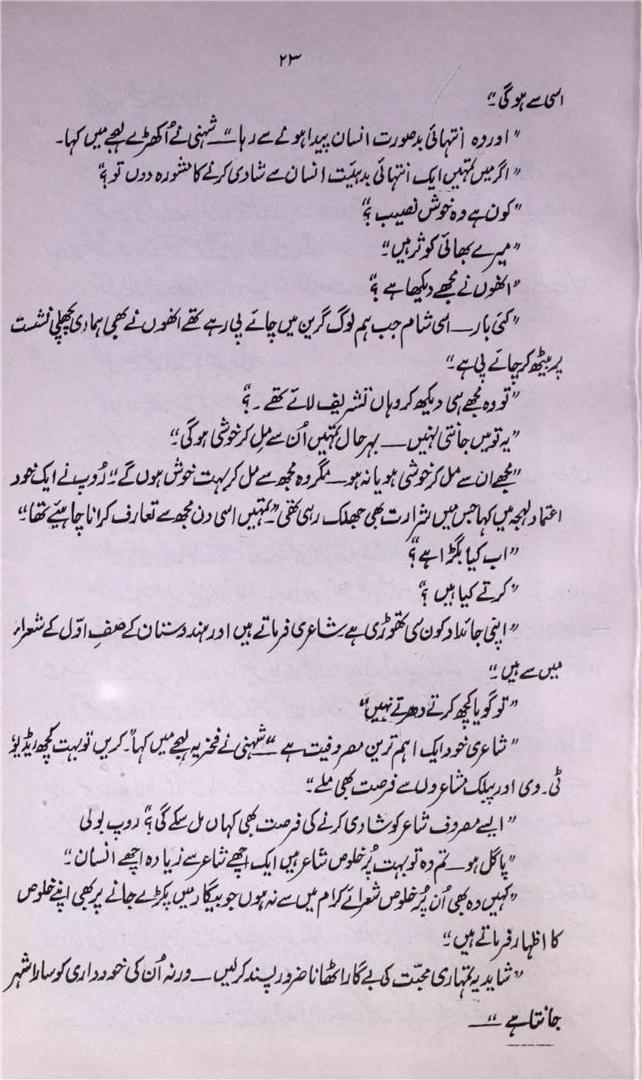 ۲۳
اسی سے ہوگی"
"اور وہ انتہائی بدصورت انسان پیدا ہونے سے رہا" شہنی نے اُکھڑے لہجے میں کہا۔
"اگر میں تمہیں ایک انتہائی بدہیئت انسان سے شادی کرنے کا مشورہ دوں تو؟"
"کون ہے وہ خوش نصیب؟"
"میرے بھائی کوثر ہیں"
"انھوں نے مجھے دیکھا ہے؟"
"کئی بار ــ اسی شام جب ہم لوگ گرین میں چائے پی رہے تھے انھوں نے بھی ہماری پچھلی نشست
پر بیٹھ کر چائے پی ہے۔"
"تو وہ مجھے ہی دیکھ کر وہاں تشریف لائے تھے۔؟"
"یہ تو میں جانتی نہیں ــ بہرحال تمہیں اُن سے مل کر خوشی ہوگی"
"مجھے ان سے مل کر خوشی ہو یا نہ ہو ــ مگر وہ مجھ سے مل کر بہت خوش ہوں گے" رُوپ نے ایک خود
اعتماد لہجہ میں کہا جس میں شرارت بھی جھلک رہی تھی "تمہیں اسی دن مجھ سے تعارف کرانا چاہیئے تھا"
"اب کیا بگڑا ہے؟"
"کرتے کیا ہیں؟"
"اپنی جائداد کون سی تھوڑی ہے شاعری فرماتے ہیں اور ہندوستان کے صفِ اوّل کے شعراء
میں سے ہیں"
"تو گویا کچھ کرتے دھرتے نہیں"
"شاعری خود ایک اہم ترین مصروفیت ہے" شہنی نے فخریہ لہجے میں کہا "کریں تو بہت کچھ ریڈیو'
ٹی۔وی اور پبلک مشاعروں سے فرصت بھی ملے"
"ایسے مصروف شاعر کو شادی کرنے کی فرصت بھی کہاں مل سکے گی؟" روپ بولی
"پاگل ہو ــ تم وہ تو بہت پُرخلوص شاعر ہیں ایک اچھے شاعر سے زیادہ اچھے انسان"
"کہیں وہ بھی اُن پُرخلوص شعرائے کرام میں سے نہ ہوں جو بیگار میں پکڑے جانے پر بھی اپنے خلوص
کا اظہار فرماتے ہیں"
"شاید یہ تمہاری محبّت کی بے گار اٹھانا ضرور پسند کرلیں ــ ورنہ اُن کی خودداری کو سارا شہر
جانتا ہے ــ"